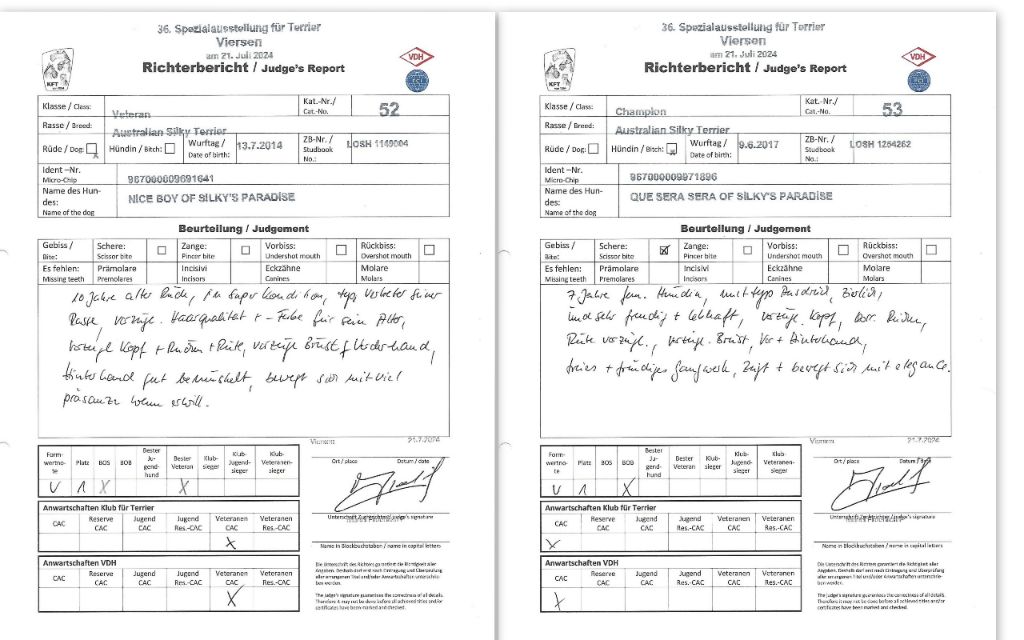 36. Spezialausstellung für Terrier
Viersen
am 21. Juli 2024
KFT
VDH
Richterbericht / Judge's Report
Klasse / Class:
Veteran
Kat.-Nr./
Cat.-No.
52
Rasse / Breed:
Australian Silky Terrier
Rüde / Dog:
Hündin / Bitch:
Wurftag /
Date of birth:
13.7.2014
ZB-Nr. /
Studbook
No.:
LOSH 1149004
Ident –Nr.
Micro-Chip
967000009691641
Name des Hun-
des:
Name of the dog
NICE BOY OF SILKY'S PARADISE
Beurteilung / Judgement
Gebiss /
Bite:
Schere:
Scissor bite
Zange:
Pincer bite
Vorbiss:
Undershot mouth
Rückbiss:
Overshot mouth
Es fehlen:
Missing teeth
Prämolare
Premolares
Incisivi
Incisors
Eckzähne
Canines
Molare
Molars
10 Jahre alter Rüde, in super Kondition, typ. Vertreter seiner
Rasse, vorzügl. Haarqualität + - Farbe für sein Alter,
vorzügl Kopf + Rücken + Rute, vorzügl Brust Vorderhand,
Hinterhand gut bemuskelt, bewegt sich mit viel
präsanz wenn er will.
Form-
wertno-
te
Platz
BOS
BOB
Bester
Ju-
gend-
hund
Bester
Veteran
Klub-
sieger
Klub-
Jugend-
sieger
Klub-
Veteranen-
sieger
V 1 X X
Viersen
21.7.2024
Ort / place
Datum / date
Anwartschaften Klub für Terrier
CAC
Reserve
CAC
Jugend
CAC
Jugend
Res.-CAC
Veteranen
CAC
Veteranen
Res.-CAC
X
Name in Blockbuchstaben / name in capital letters
Anwartschaften VDH
CAC
Reserve
CAC
Jugend
CAC
Jugend
Res.-CAC
Veteranen
CAC
Veteranen
Res.-CAC
X
The judge's signature guarantees the correctness of all details.
Therefore it may not be done before all achieved titles and/or
certificates have been marked and checked.
36. Spezialausstellung für Terrier
Viersen
am 21. Juli 2024
KFT
VDH
Richterbericht / Judge's Report
Klasse / Class:
Champion
Kat.-Nr./
Cat.-No.
53
Rasse / Breed:
Australian Silky Terrier
Rüde / Dog:
Hündin / Bitch:
Wurftag /
Date of birth:
9.6.2017
ZB-Nr. /
Studbook
No.:
LOSH 1264262
Ident –Nr.
Micro-Chip
967000009971896
Name des Hun-
des:
Name of the dog
QUE SERA SERA OF SILKY'S PARADISE
Beurteilung / Judgement
Gebiss /
Bite:
Schere:
Scissor bite
Zange:
Pincer bite
Vorbiss:
Undershot mouth
Rückbiss:
Overshot mouth
Es fehlen:
Missing teeth
Prämolare
Premolares
Incisivi
Incisors
Eckzähne
Canines
Molare
Molars
7 Jahre fem. Hündin, mit typ Ausdruck, zierlich,
und sehr freudig + lebhaft, vorzügl. Kopf, korr. Rücken,
Rute vorzügl., vorzügl. Brust, Vor + Hinterhand,
freies + freudiges Gangwerk, zeigt + bewegt sich mit eleganz.
Form-
wertno-
te
Platz
BOS
BOB
Bester
Ju-
gend-
hund
Bester
Veteran
Klub-
sieger
Klub-
Jugend-
sieger
Klub-
Veteranen-
sieger
V 1 X
Viersen
21.7.2024
Ort / place
Datum / date
Anwartschaften Klub für Terrier
CAC
Reserve
CAC
Jugend
CAC
Jugend
Res.-CAC
Veteranen
CAC
Veteranen
Res.-CAC
X
Name in Blockbuchstaben / name in capital letters
Anwartschaften VDH
CAC
Reserve
CAC
Jugend
CAC
Jugend
Res.-CAC
Veteranen
CAC
Veteranen
Res.-CAC
X
The judge's signature guarantees the correctness of all details.
Therefore it may not be done before all achieved titles and/or
certificates have been marked and checked.